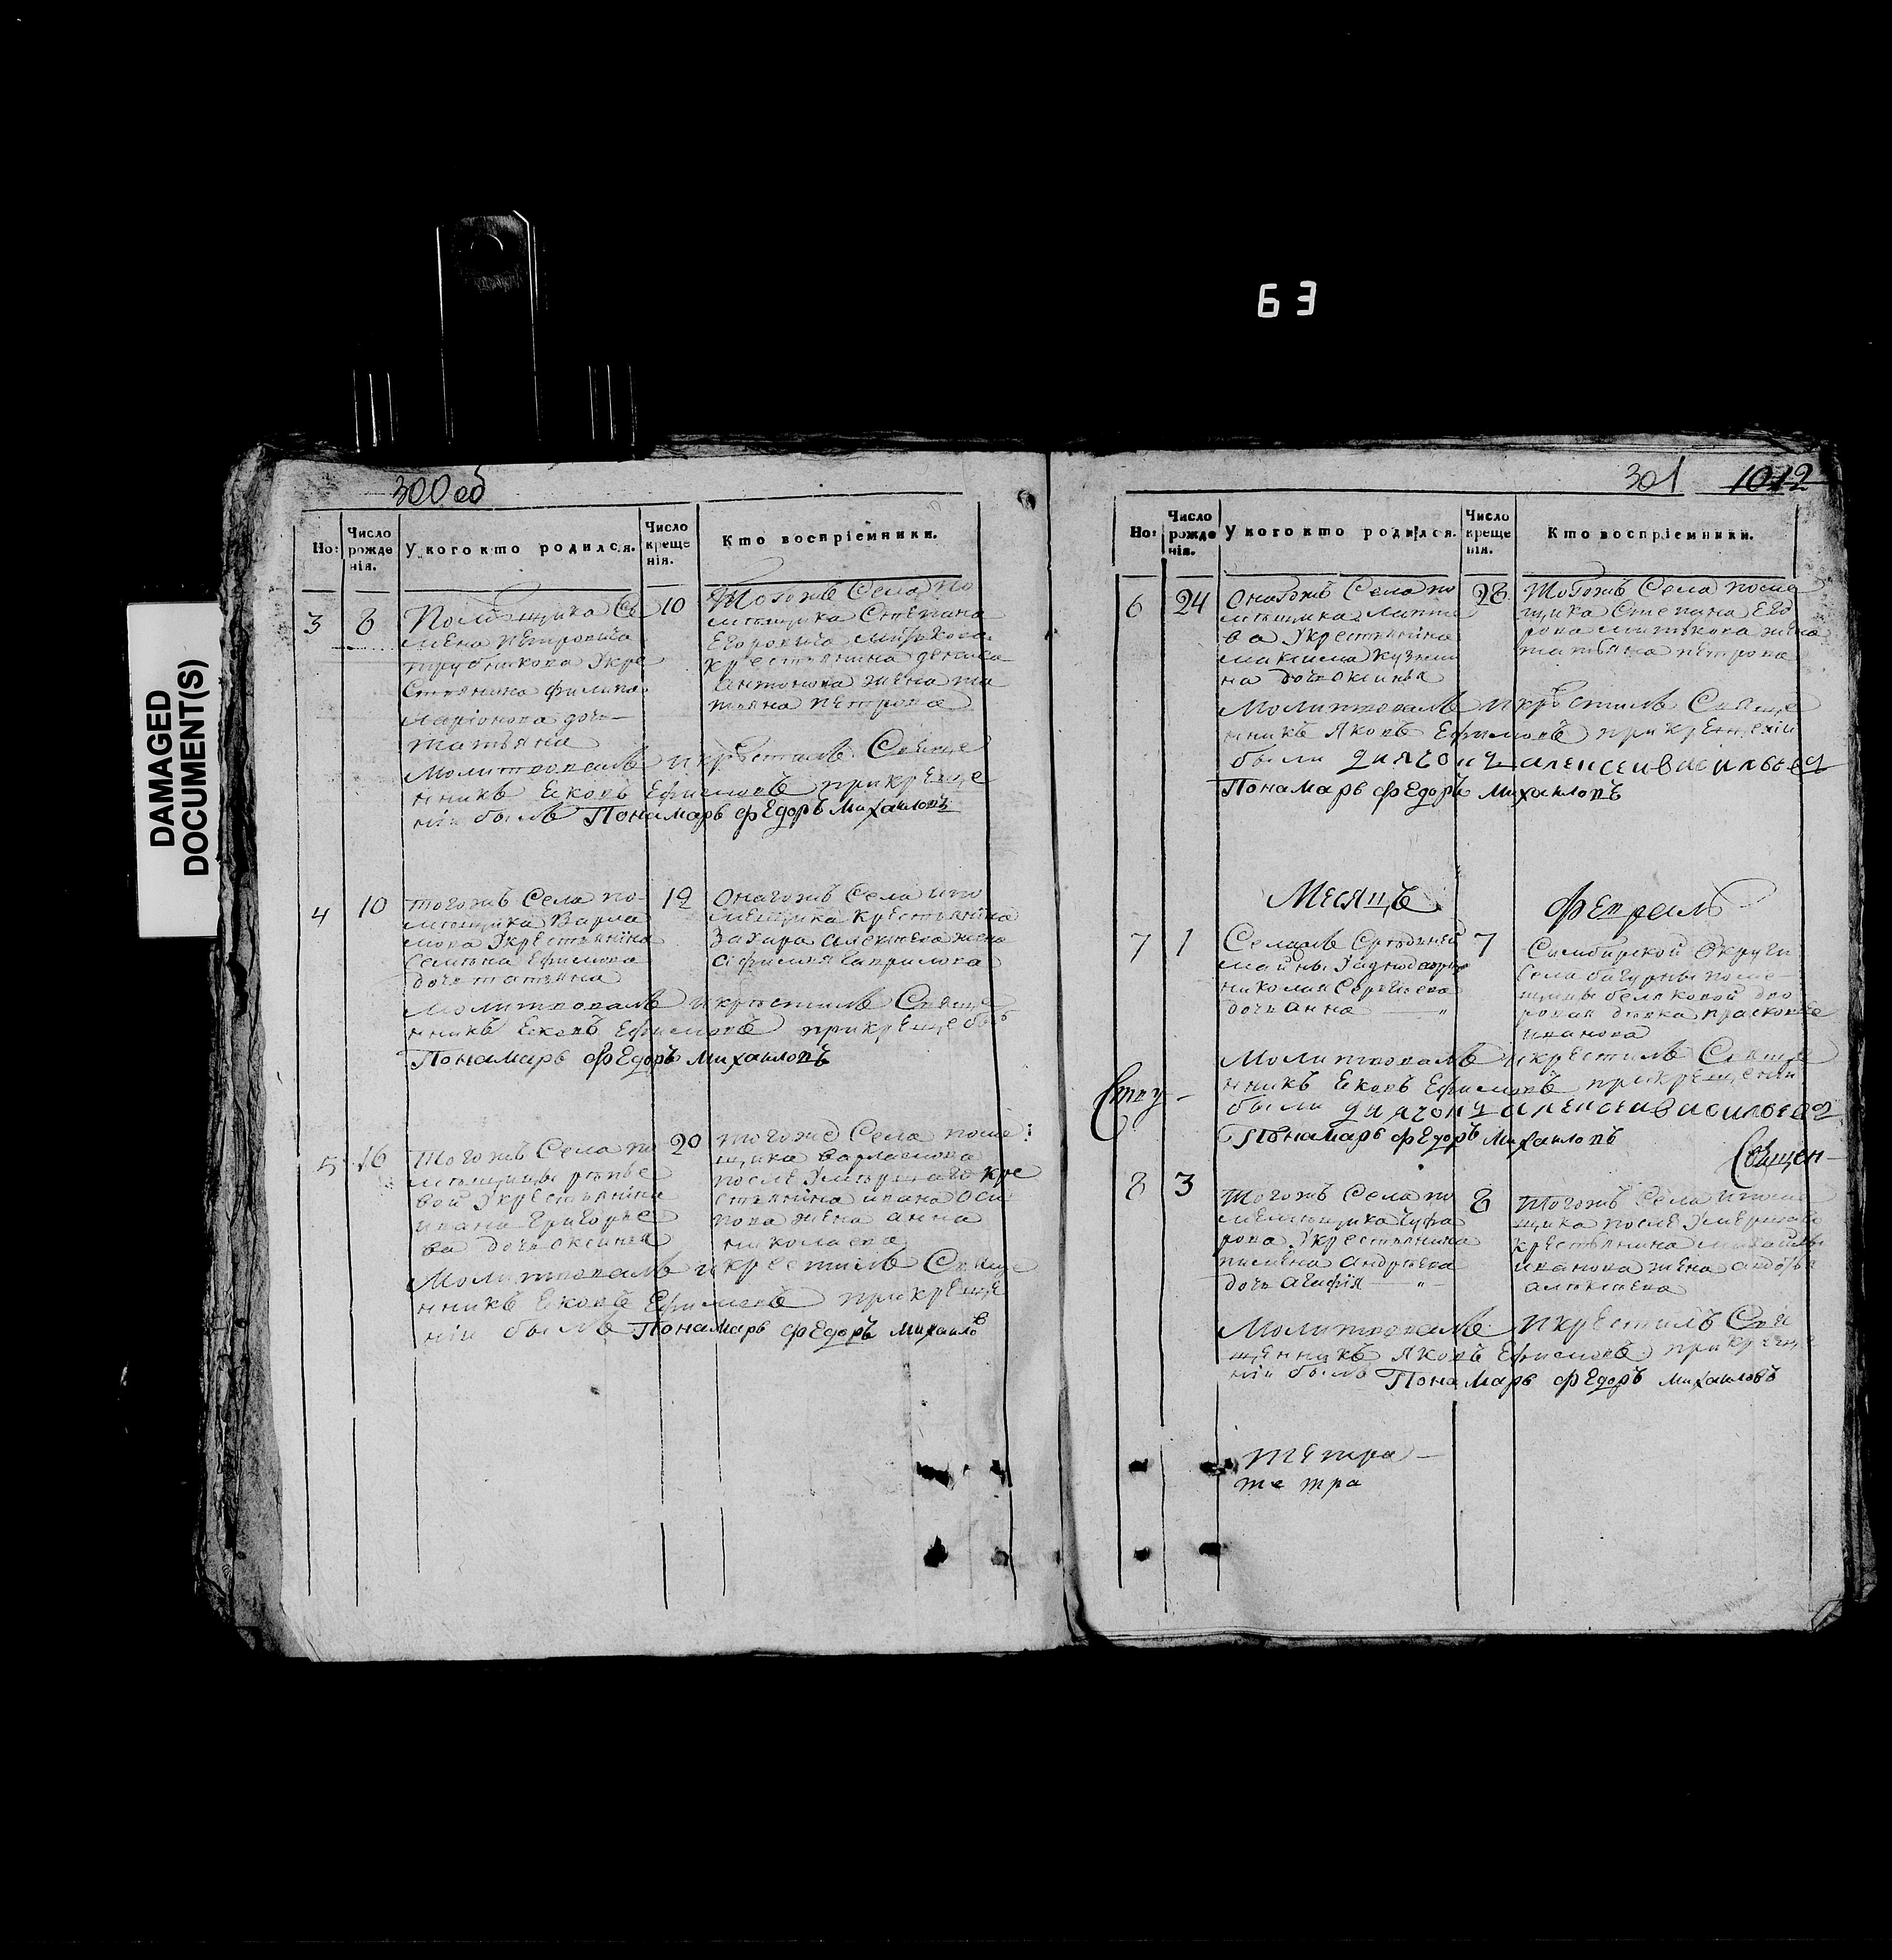 63
DAMAGED
DOCUMENT(S)
300 об
Но:
Число рожденія.
У кого кто родился.
Число крещенія.
Кто воспріемники.
3 8
Помѣщика Се
мена Петровича
трубникова Укре
стьянина филипа
ларіонова дочь
татьяна
10
Тогожъ Села по
мѣщика Степана
Егоровича
крестьянина дениса
антонова жена та
тьяна петрова
Молитвовалъ икрестилъ Свяще
нникъ Ековъ Ефимовъ прикреще
ніи былъ Понамарь фЕдоръ Михаиловъ
4 10
тогожъ Села по
мѣщика Варла
мова Укрестьянина
Семиона Ефимова
дочь татьяна
12
Онагожъ Села ипо
мещика крестьянина
Захара алексѣева жена
афимья гаврилова
Молитвовалъ икрѣстилъ Свяще
нникъ Ековъ Ефимовъ прикреще былъ
Понамарь фЕдоръ Михаиловъ
5 16
Тогожъ Села по
мѣщицы
вой Укрестьянина
ивана Григорье
ва дочь оксинья
20
тогоже Села поме:
щика варламова
после Умершаго кре
стьянина ивана Оси
пова жена анна
николаева
Молитвовалъ икрестилъ Свяще
нникъ Ековъ Ефимовъ прикреще
ніи былъ Понамарь фЕдоръ Михаиловъ
301 1012
Но:
Число рожденія.
У кого кто родился.
Число крещенія.
Кто воспріемники.
6 24
Онагожъ Села по
мѣщика Лапте
ва Укрестьянина
максима кузми
на дочь оксинья
28
Тогожъ Села поме
щика Степана Его
рова жена
татьяна петрова
Молитвовалъ икрѣстилъ Свяще
нникъ Яковъ Ефимовъ прикрещеніи
были дьячокъ алексеи васильевъ
Понамарь фЕдоръ Михаиловъ
Месяцъ Февраль
7 1
николая Сергѣева
дочь анна
7
Сымбирской Округи
Села поме
щицы беляковой дво
ровая дѣвка прасковье
иванова
Молитвовалъ икрестилъ Свяще
нникъ Ековъ Ефимовъ прикрещеніи
были дьячокъ алексеи васильевъ
Понамарь фЕдоръ Михаиловъ
Священ
8 3
Тогожъ Села по
мещика Чуфа
рова Укрестьянина
пимена андрѣева
дочь агафія
8
Тогожъ Села ипоме
щика после Умершаго
крестьянина михайлы
иванова жена авдотья
алексѣева
Молитвовалъ икрестилъ Свя
щенникъ Яковъ Ефимовъ прикреще
ніи былъ Понамарь фЕдоръ Михаиловъ
тетра
те тра